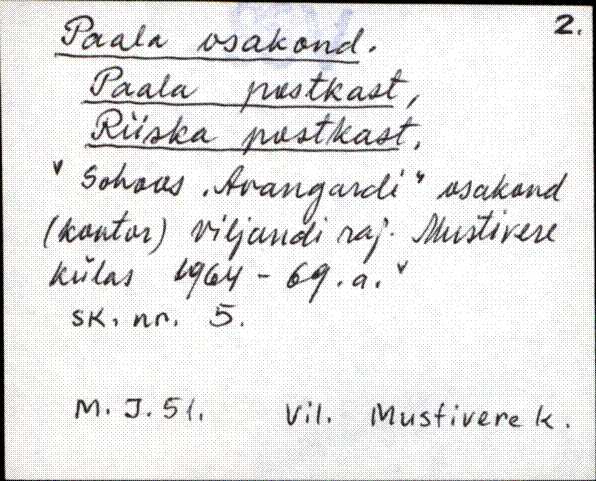 2.
Paala osakond.
Paala postkast,
Riiska postkast,
" Sohoos „Avangardi" osakond
(kontor) Viljandi raj. Mustivere
külas 1964 - 69. a. "
sk. nr. 5.
M. J. 51. Vil. Mustivere k.